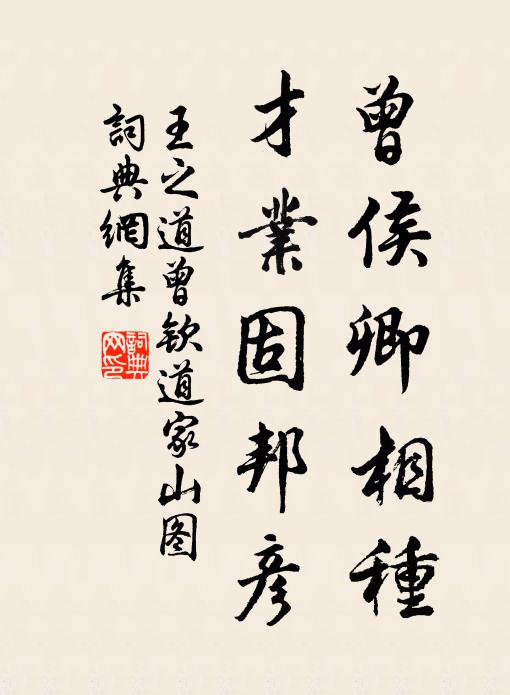 曾侯卿相種
才業固邦彥
王之道曾欽道家山图
詞典網集
詞典网印